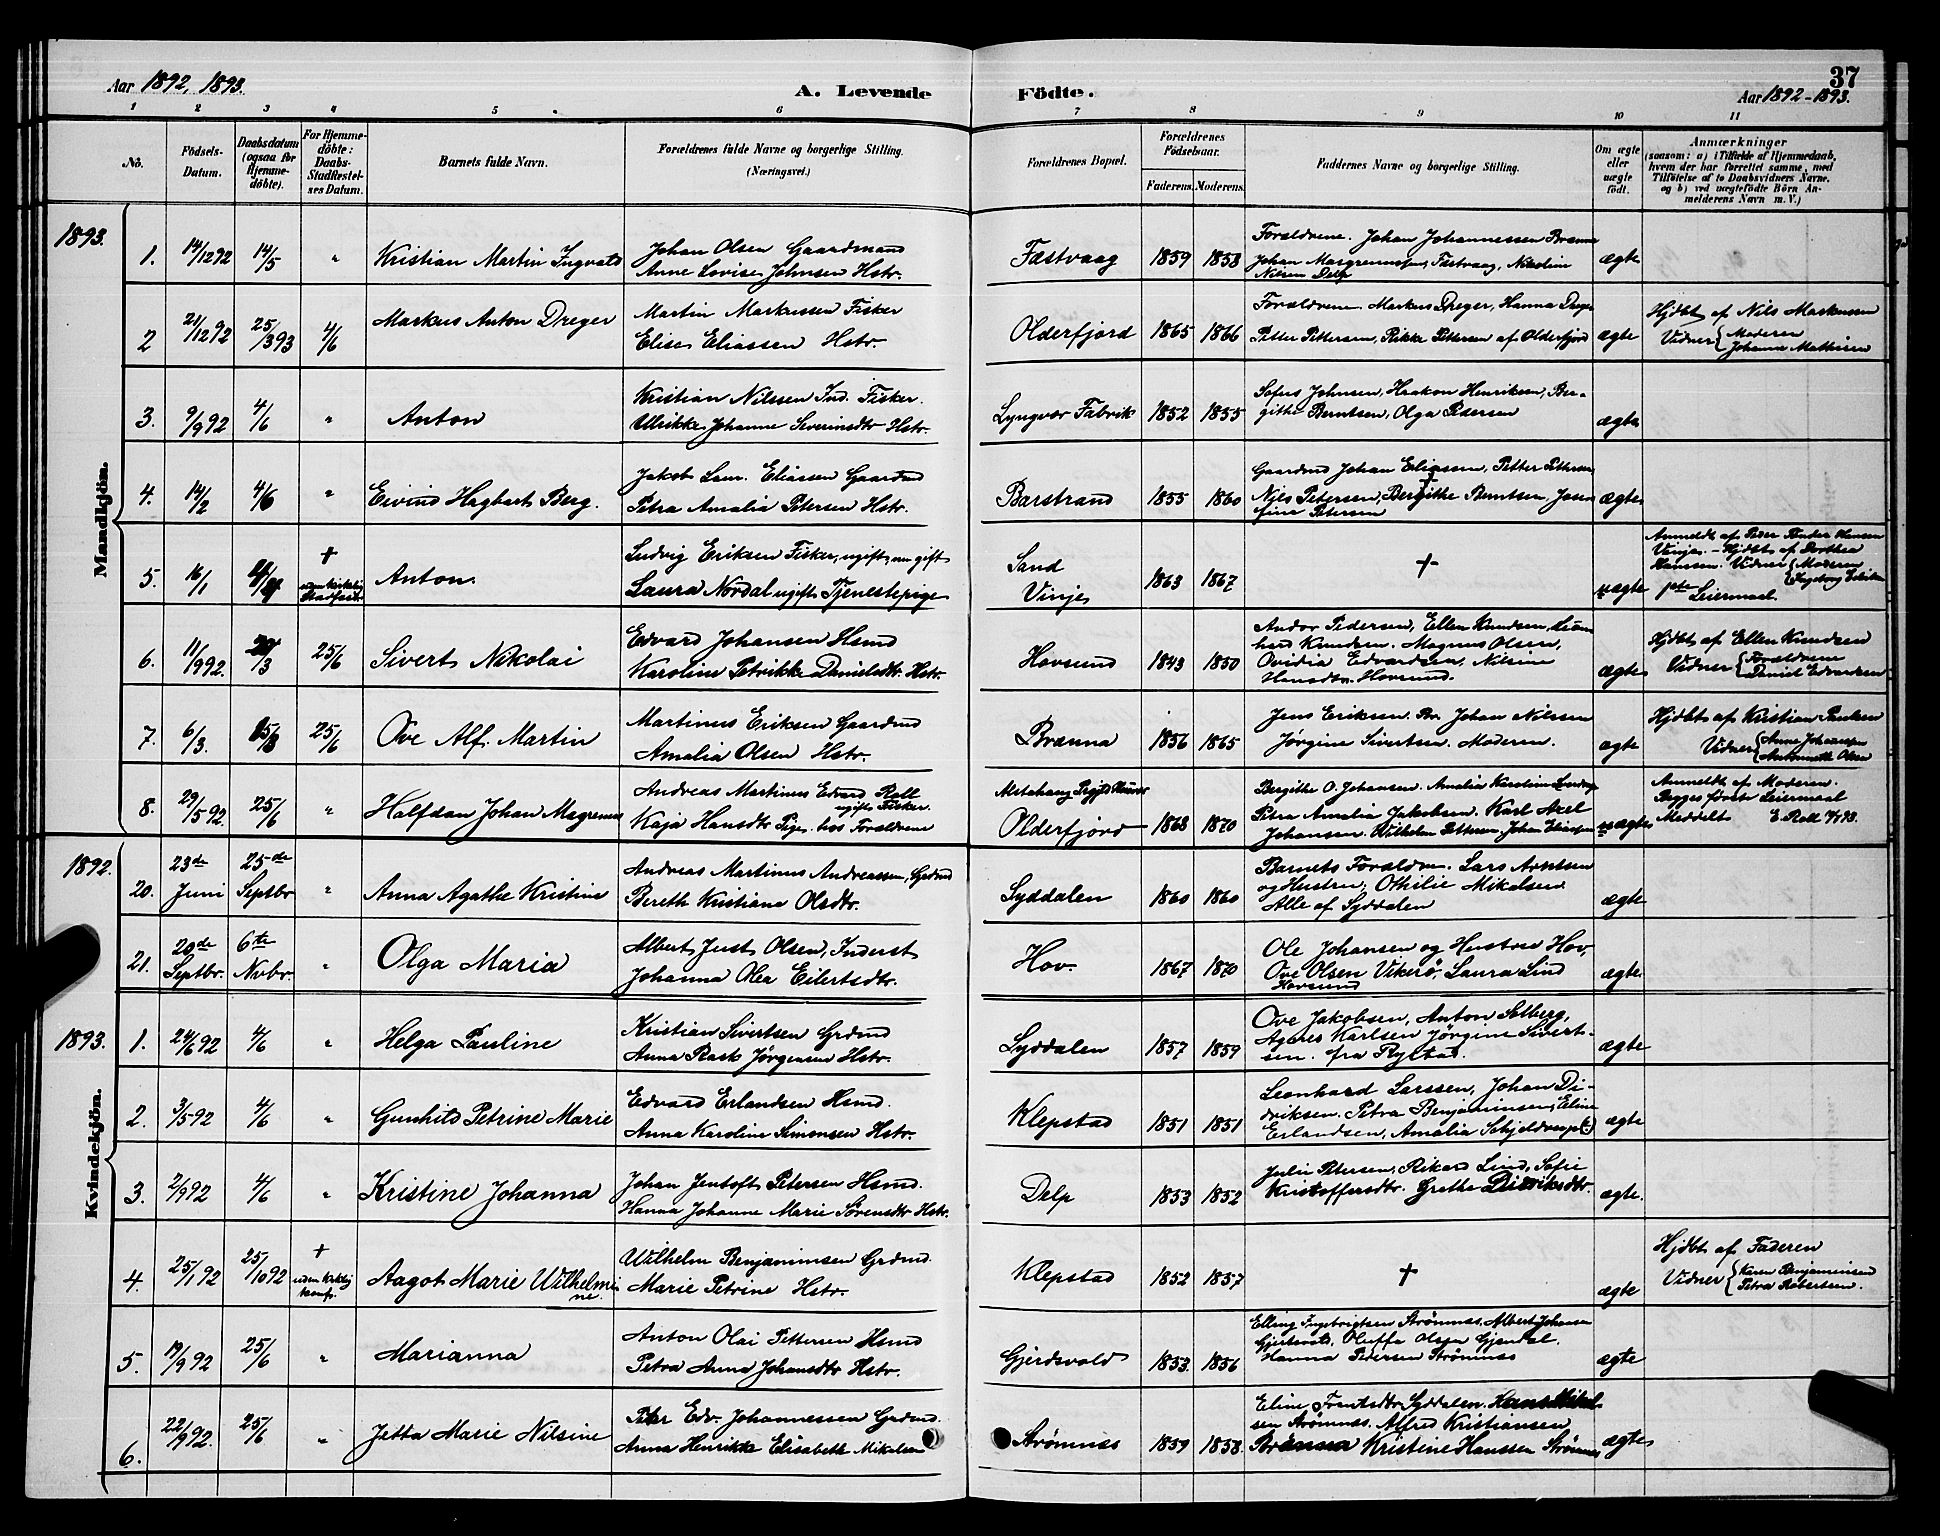 Aar 1892, 1893.
A. Levende
Födte.
37
Aar 1892-1893.
1 2 3 4 5 6 7 8 9 10 11
No.
Födsels-Datum.
Daabsdatum (ogsaa for Hjemmedöbte).
For Hjemmedöbte: Daabs-Stadfæstelses Datum.
Barnets fulde Navn.
Forældrenes fulde Navne og borgerlige Stilling.
(Næringsvei.)
Forældrenes Bopæl.
Forældrenes Födselsaar.
Faderens. Moderens.
Faddernes Navne og borgerlige Stilling.
Om ægte eller uægte födt.
Anmærkninger
(saasom: a) i Tilfælde af Hjemmedaab, hvem der har forrettet samme, med Tilföielse af to Daabsvidners Navne. og b) ved uægtefödte Börn Anmelderens Navn m. V.)
Mandkjön.
1893.
1. 14/12 92 14/5 " Kristian Martin Ingvald
Johan Olsen Gaardmand
Anne Lovise Johnsen Hstr.
Fæstvaag 1859 1858
Forældrene. Johan Johannessen Brænna
Johan Fæstvaag, Nikoline
Nilsen Delp
ægte
2 21/12 92 25/3 93 4/6 Markus Anton Dreyer
Martin Markussen Fisker
Elise Eliassen Hstr.
Olderfjord 1865 1866
Forældrene Markus Dreyer, Hanna Dreyer
Petter Pettersen, Rikke Pettersen af Olderfjord
ægte
Hjdbt af Nils Markussen
Vidner { Moderen
Johanna Mathisen
3. 9/9 92 4/6 " Anton
Kristian Nilssen Ind. Fisker.
Ulrikke Johanne Severinsdtr Hstr.
Lyngvær Fabrik 1852 1855
Sofus Johnsen, Haakon Henriksen, Ber-
githe Berntsen, Olga Pedersen
ægte
4. 14/2 4/6 " Eivind Hagbart Berg.
Jakob Sam. Eliassen Gaardmd
Petra Amalia Petersen Hstr.
Barstrand 1855 1860
Gaardmd Johan Eliassen, Petter Pettersen
Nils Petersen, Bergithe Berntsen, Jose-
fine Petersen
ægte
5. 16/1 + uden kirkelig Stadfæst. Anton.
Ludvig Eriksen Fisker, ugift, nu gift
Laura Nordal ugift Tjenestepige
Sand
Vinje 1863 1867
+
uægte
Anmeldt af Peder Hansen
Vinje. - Hjdbt af Dorthea
Hansen. Vidner { Moderen
Ingeborg
1ste Leiermaal.
6. 11/9 92. 25/6 Sivert Nikolai
Edvard Johansen Hsmd
Karoline Petrikke Danielsdtr. Hstr.
Hovsund 1843 1850
Andor Pedersen, Ellen Knudsen, Leon-
hard Knudsen. Magnus Olsen,
Ovidia Edvardsen, Nilsine
Hansdtr. Hovsund.
ægte
Hjdbt af Ellen Knudsen
Vidner { Forældrene
Daniel Edvardsen
7. 6/3. 25/6 Ove Alf. Martin
Martinus Eriksen Gaardmd
Amalia Olsen Hstr.
Brænna 1856 1865
Jens Eriksen. Br. Johan Nilssen
Jörgine Sivertsen. Moderen.
ægte
Hjdbt af Kristian Paulsen
Vidner { Anne Johansen
Antonette Olsen
8. 29/5 92. 25/6 " Halfdan Johan Magrenus
Andreas Martinus Edvard Roll
ugift Fisker.
Kaja Hansdtr Pige hos Forældrene
Alstahaug
Olderfjord 1868 1870
Bergithe O. Johansen. Amalia Karoline
Petra Amalia Jakobsen. Karl Axel
Johansen. Wilhelm Pettersen, Johan Eliassen
uægte
Anmeldt af Moderen.
Begges förste Leiermaal
Meddelt E. Roll
Kvindekjön.
1892.
20. 23de Juni 25de Septbr " Anna Agathe Kristine
Andreas Martinus Andreassen, Grdmd
Bereth Kristiane Olsdtr.
Syddalen 1860 1860
Barnets Forældre. Lars Arntsen
og Hustru, Othilie Mikalsen.
Alle af Syddalen
ægte
21. 20de Septbr. 6te Nvbr. " Olga Maria
Albert Just Olsen, Inderst
Johanna Olea Eilertsdtr.
Hov. 1867 1870
Ole Johansen og Hustru Hov,
Ove Olsen Vikerö, Laura Lind
Hovsund
ægte
1893.
1. 24/6 92 4/6 " Helga Pauline
Kristian Sivertsen Grdmd
Anna Rask Jørgensen Hstr.
Syddalen 1857 1859
Ove Jakobsen, Anton Solberg,
Agnes Karlsen Jørgine Sivert-
sen. fra Rystad.
ægte
2. 3/5 92 4/6 " Gunhild Petrine Marie
Edvard Erlandsen Hsmd.
Anna Karoline Simonsen Hstr.
Klepstad 1851 1851
Leonhard Larssen, Johan Di-
driksen. Petra Benjaminsen, Eline
Erlandsen, Amalia Schjeldrup
ægte
3. 2/9 92 4/6 " Kristine Johanna
Johan Jentoft Petersen Hsmd.
Hanna Johanne Marie Sørensdtr Hstr.
Delp 1853 1852
Julie Petersen, Rikard Lind, Sofie
Kristoffersdtr. Grethe Didriksdtr.
ægte.
4. 25/1 92 25/10 92 + uden kirkelig Aagot Marie Wilhelmine.
Wilhelm Benjaminsen Grdmd.
Marie Petrine Hstr.
Klepstad 1852 1857
+
ægte
Hjdbt af Faderen
Vidner { Karen Benjaminsen
Petra Robertsen.
5. 19/9 92 25/6 " Marianna
Anton Olai Pettersen Hsmd
Petra Anna Johansdtr Hstr.
Gjerdsvold 1853. 1856
Elling Ingebrigtsen Strömnes, Albert Johansen
Gjertsvold, Oluffa Olsen
Hanna Pedersen Strömnes
ægte
6. 22/9 92. 25/6 " Jetta Marie Nilsine
Peter Edv. Johannessen Grdmd.
Anna Henrikke Elisabeth Mikalsen
Strömnes 1859 1858.
Eline Syddalen. Hans Mikal-
sen Strömnes. Alfred Kristiansen
Brænna Kristine Hanssen Strömnes
ægte